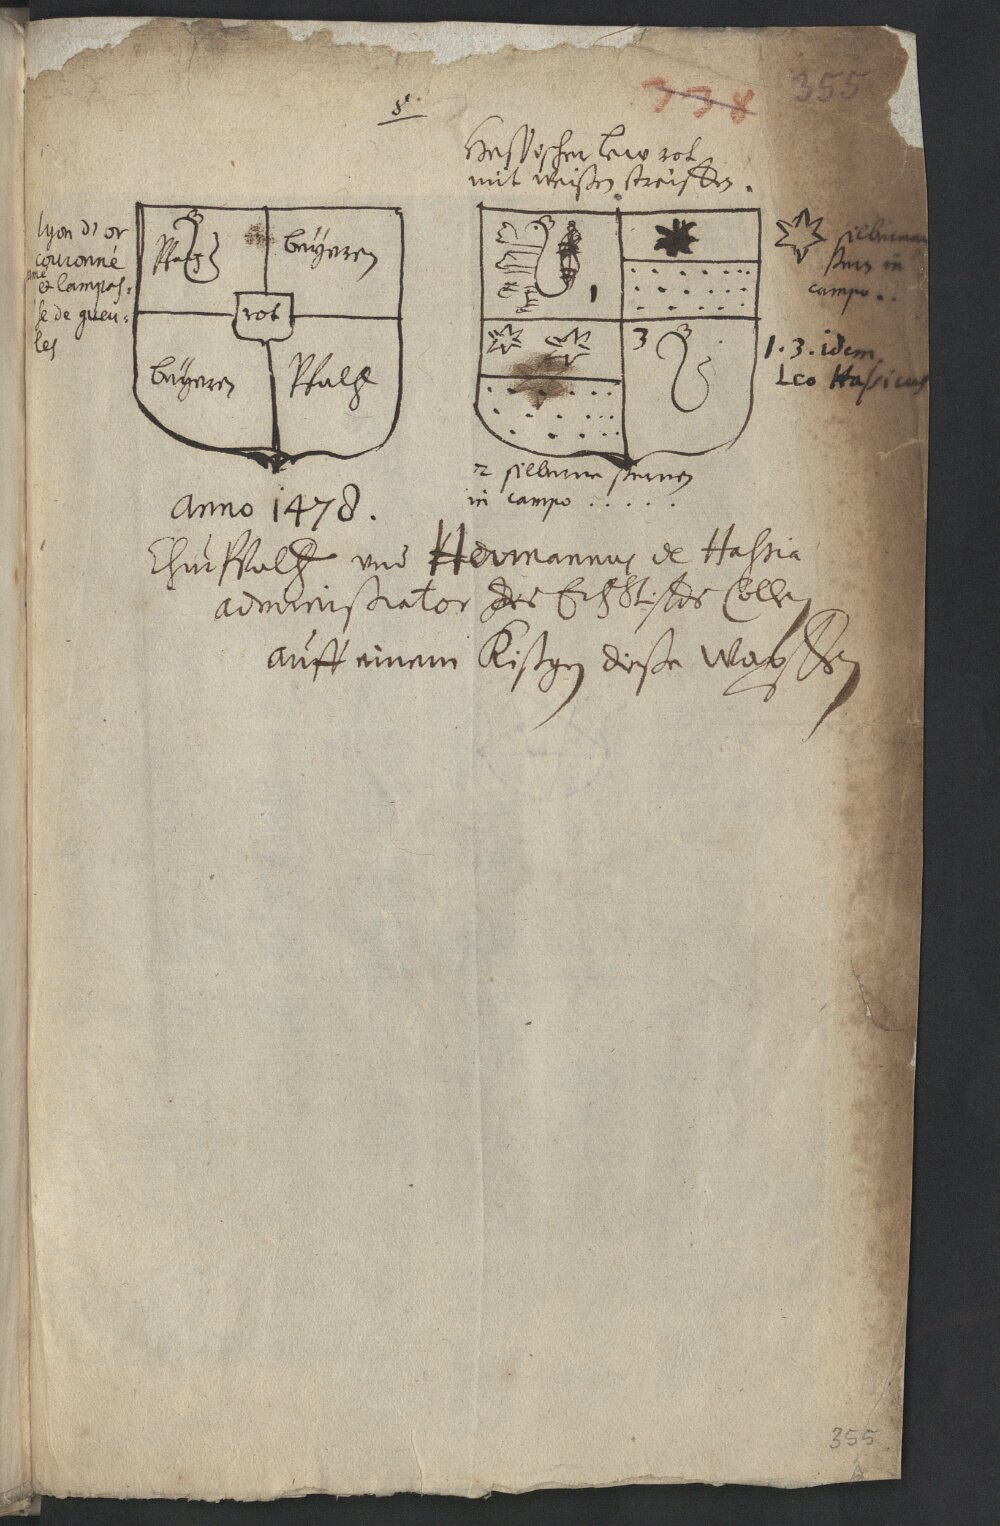 8.
338
355
Hessischer lew rot
mit weissen streiffen.
lyon d'or
couronné
armé
& lampas-
sé de gueu-
les
Pfalz
bayeren
rot
bayeren
Pfaltz
1
3
silberner
stern in
campo . .
1. 3. idem.
Leo Hassicus
2 silberne sternen
in campo . . . . .
Anno 1478.
Chur Pfaltz und Hermannus de Hassia
administrator des Ertzstiffts Cöllen
auff einem Kistgen diesse Wapffen
355